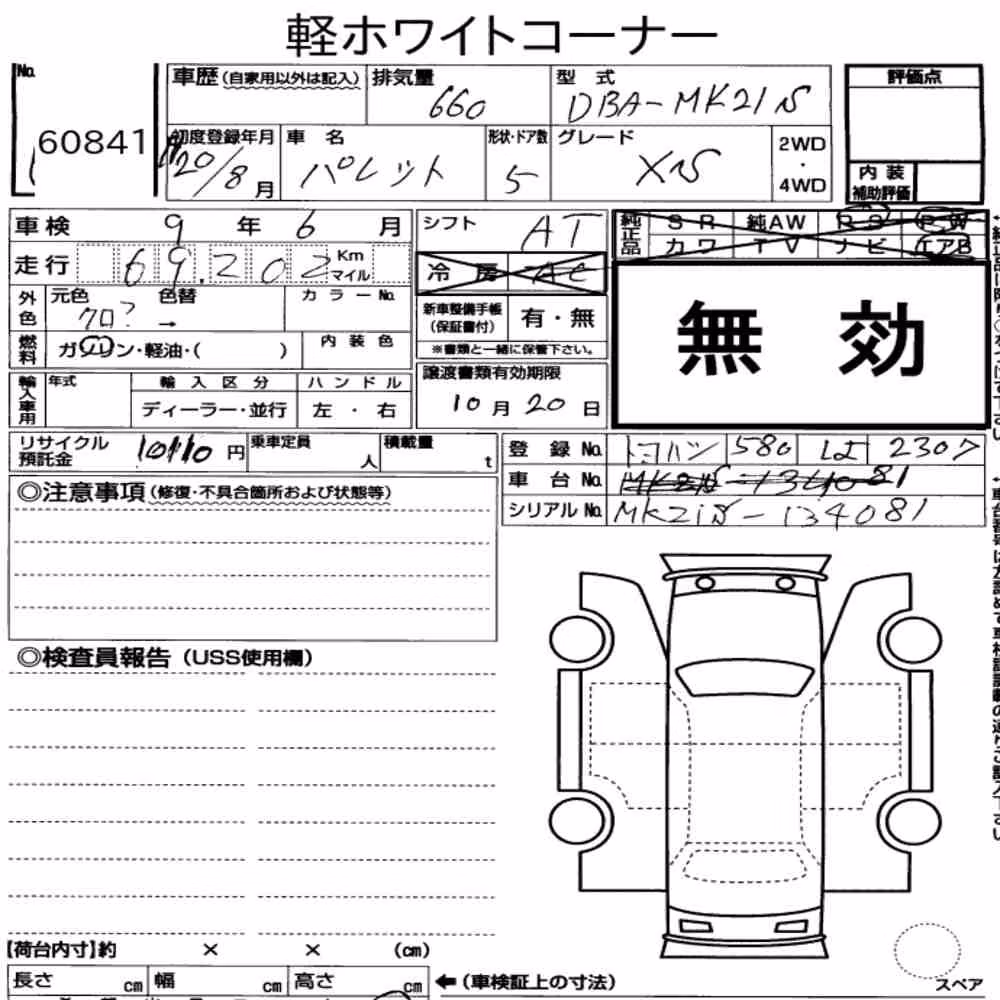 軽ホワイトコーナー
No. 60841
車歴 (自家用以外は記入) 排気量 660 型式 DBA-MK21S
初度登録年月 20/8月 車名 パレット 形状・ドア数 5 グレード XS 2WD・4WD
評価点
内装補助評価
車検 9年 6月 シフト AT
走行 69,202 Km マイル
冷房 AC
純正品 SR 純AW PS PW
カワ TV ナビ エアB
無効
外色 元色 クロ? 色替 → カラーNo.
燃料 ガソリン・軽油・( ) 内装色
新車整備手帳 (保証書付) 有・無
※書類と一緒に保管下さい。
輸入車用 年式 輸入区分 ハンドル
ディーラー・並行 左・右
譲渡書類有効期限
10月20日
リサイクル預託金 10110円 乗車定員 人 積載量 t
登録No. 580 は 2307
車台No.
シリアルNo. MK21S-134081
◎注意事項 (修復・不具合箇所および状態等)
◎検査員報告 (USS使用欄)
【荷台内寸】約 × × (cm)
長さ cm 幅 cm 高さ cm ←(車検証上の寸法)
スペア